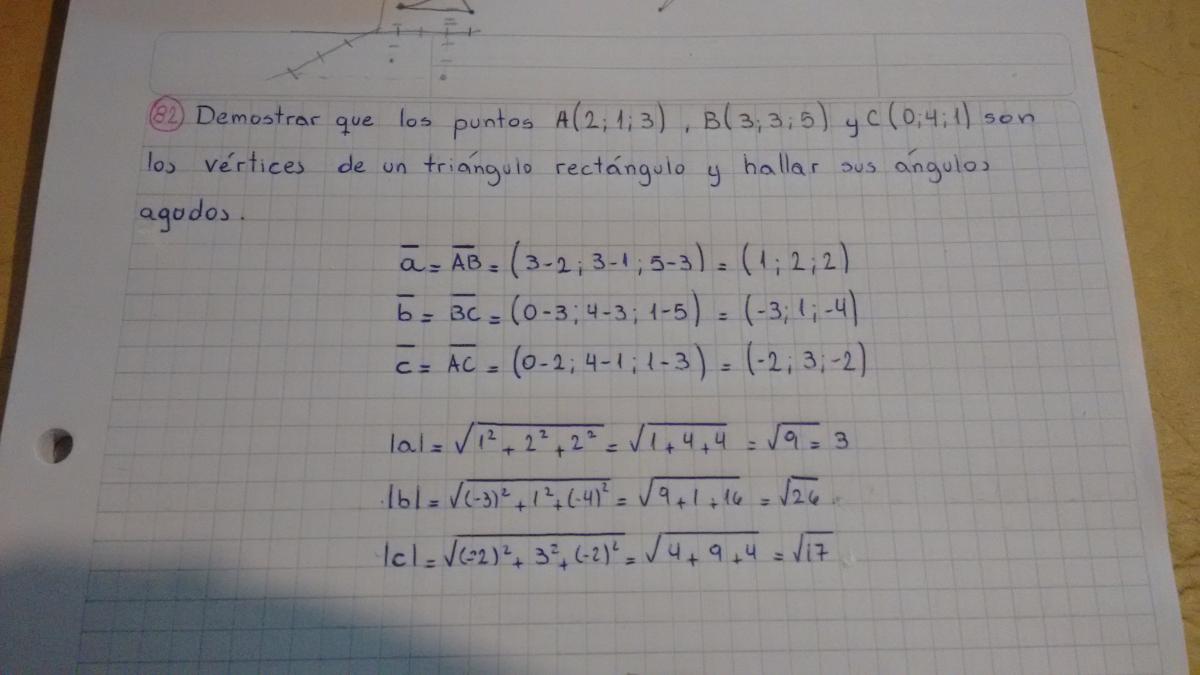 82 Demostrar que los puntos A(2;1;3), B(3;3;5) y C(0;4;1) son
los vértices de un triángulo rectángulo y hallar sus ángulos
agudos.
a = AB = (3-2; 3-1; 5-3) = (1; 2; 2)
b = BC = (0-3; 4-3; 1-5) = (-3; 1; -4)
c = AC = (0-2; 4-1; 1-3) = (-2; 3; -2)
|a| = √1²+2²+2² = √1+4+4 = √9 = 3
|b| = √(-3)²+1²+(-4)² = √9+1+16 = √26
|c| = √(-2)²+3²+(-2)² = √4+9+4 = √17